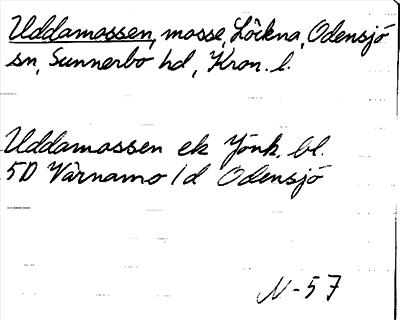 Uddamossen, mosse, Löckna, Odensjö
sn, Sunnerbo hd, Kron. l.
Uddamossen ek Jönk. bl.
5D Värnamo 1d Odensjö
N-57